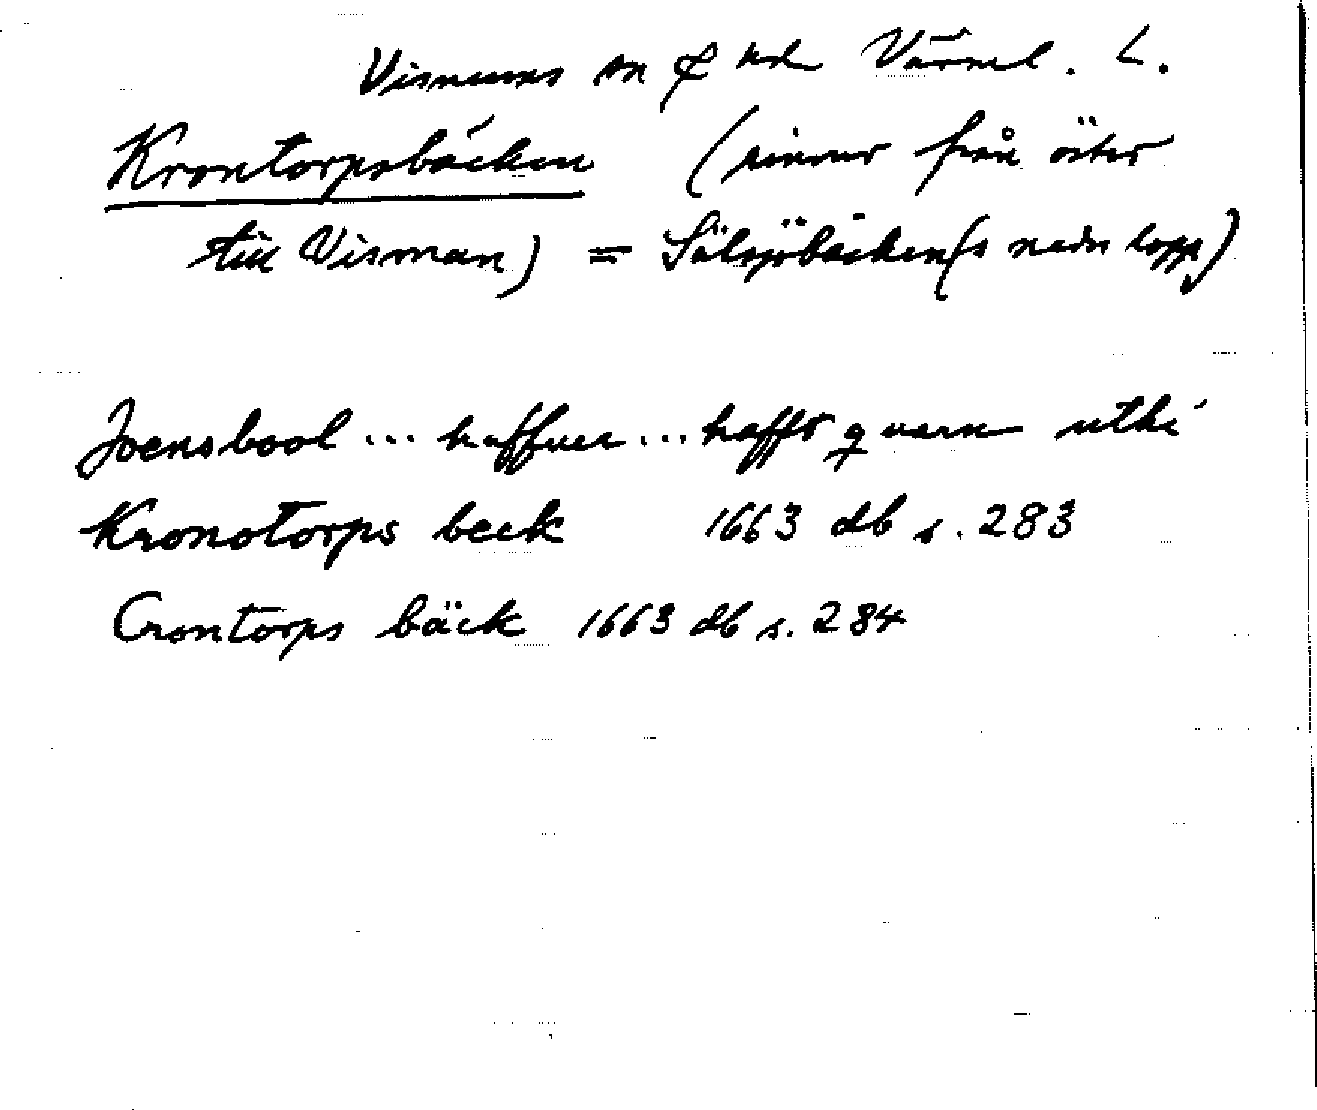 Visnums sn & hd Värml. L.
Krontorpsbäcken (rinner från öster
till Visman) = Sälsjöbäcken(s nedre lopp)
Joensbool ... haffuer ... hafft quarn uthi
Kronotorps beck 1663 db s. 283
Crontorps bäck 1663 db s. 284